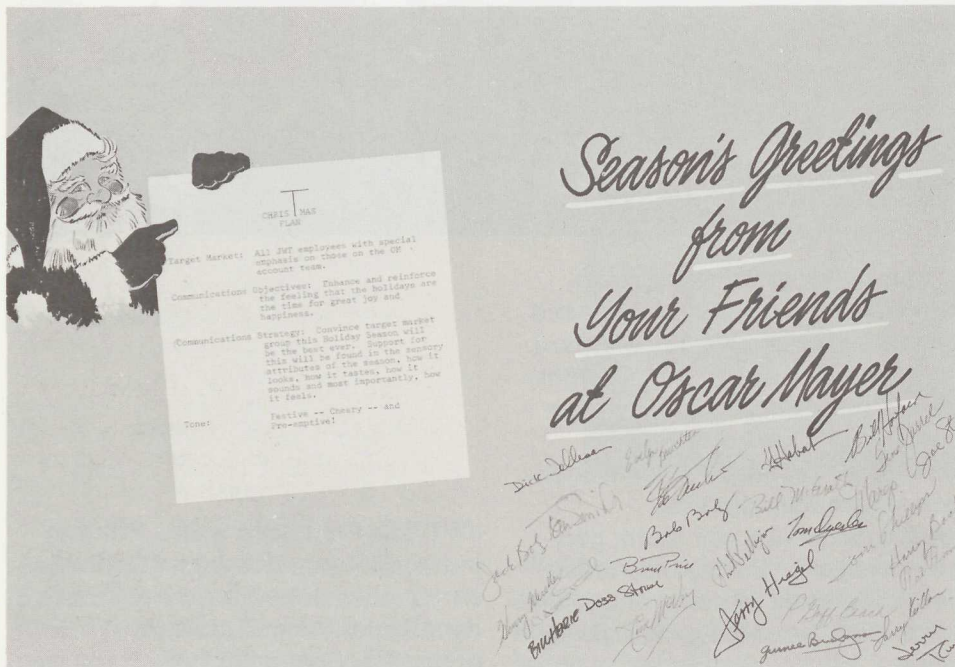 CHRIS T MAS
PLAN
Target Market: All JWT employees with special
emphasis on those on the OM
account team.
Communications Objectives: Enhance and reinforce
the feeling that the holidays are
the time for great joy and
happiness.
Communications Strategy: Convince target market
group this Holiday Season will
be the best ever. Support for
this will be found in the sensory
attributes of the season, how it
looks, how it tastes, how it
sounds and most importantly, how
it feels.
Tone: Festive -- Cheery -- and
Pre-emptive!
Season's Greetings
from
Your Friends
at Oscar Mayer
Dick
Evelyn
Bill
Jack
Bob
Bill
Margo
Joe
Bruce Price
Tom
Harry
Jerry Hregel
Doss
Jerry